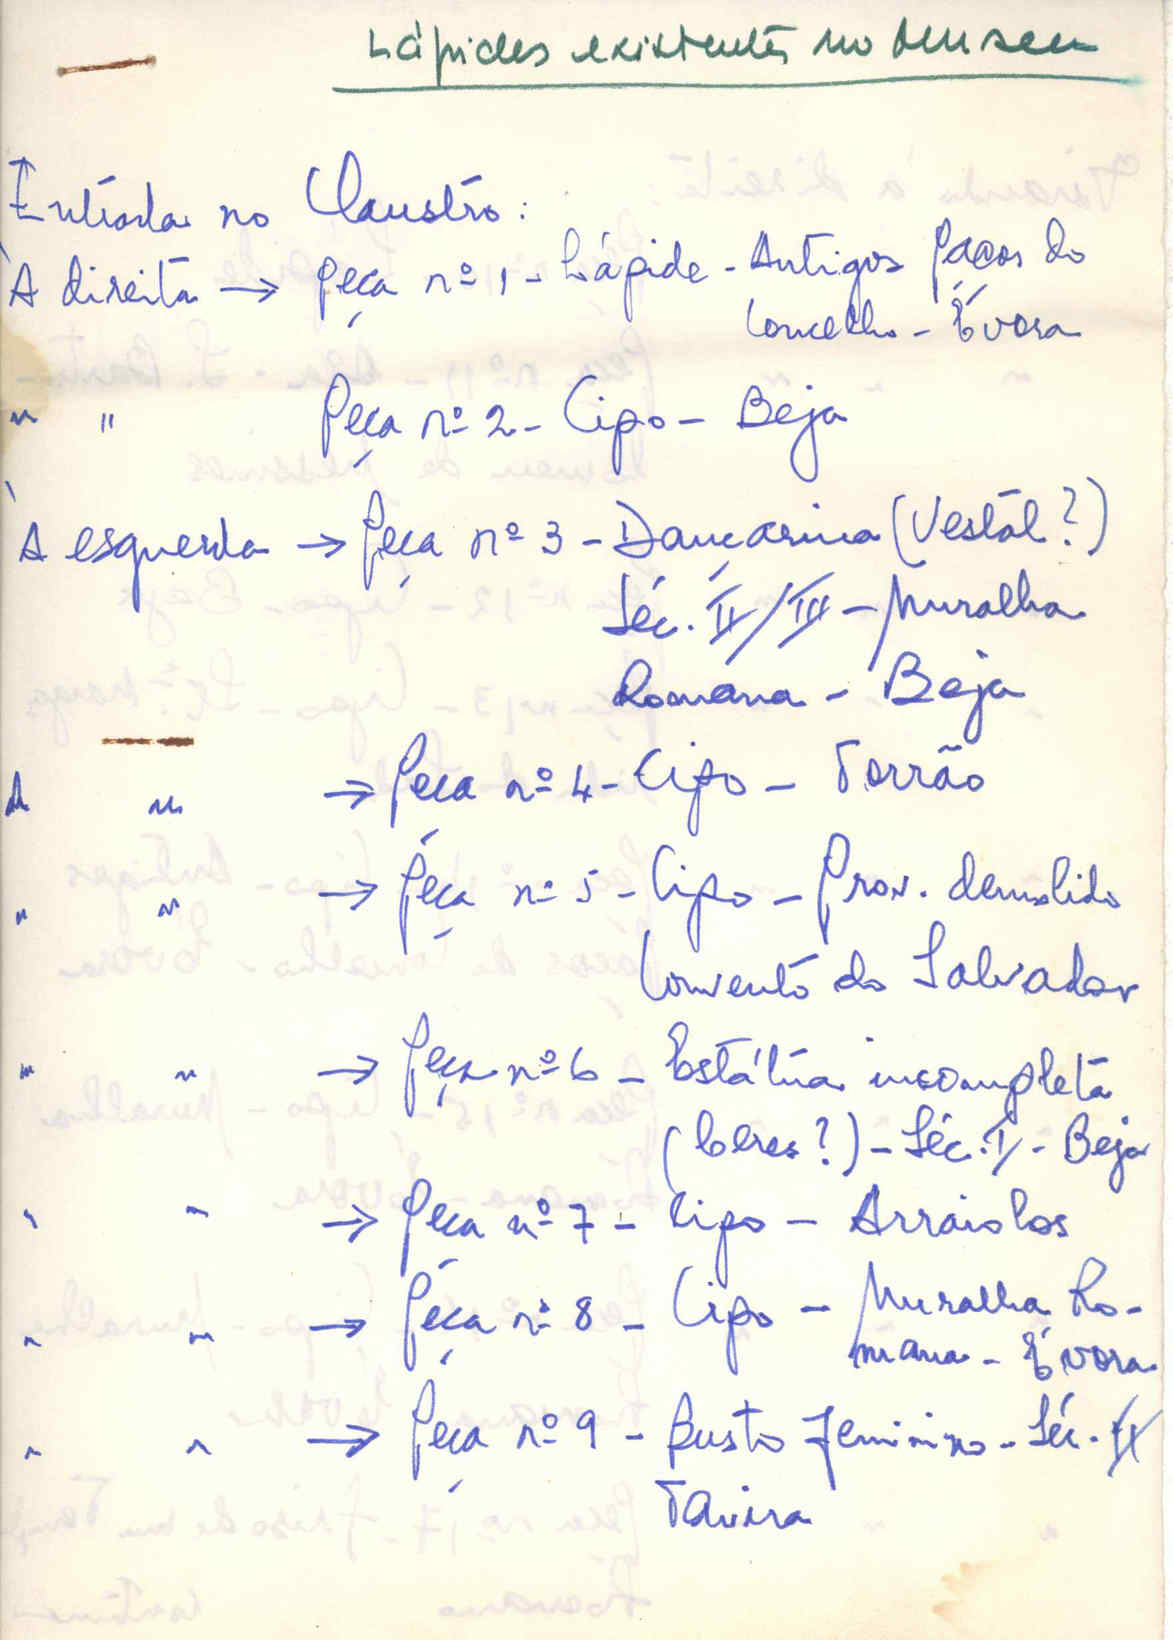 Lápides existentes no Museu
Entrada no Claustro:
À direita → Peça nº 1 - Lápide - Antigos Paços do
Concelho - Évora
" " Peça nº 2 - Cipo - Beja
À esquerda → Peça nº 3 - Dançarina (Vestal?)
Séc. II/III - Muralha
Romana - Beja
À " → Peça nº 4 - Cipo - Torrão
" " → Peça nº 5 - Cipo - Prov. demolido
Convento do Salvador
" " → Peça nº 6 - Estátua incompleta
(Ceres?) - Séc. I - Beja
" " → Peça nº 7 - Cipo - Arraiolos
" " → Peça nº 8 - Cipo - Muralha Ro-
mana - Évora
" " → Peça nº 9 - Busto feminino - Séc. II
Tavira